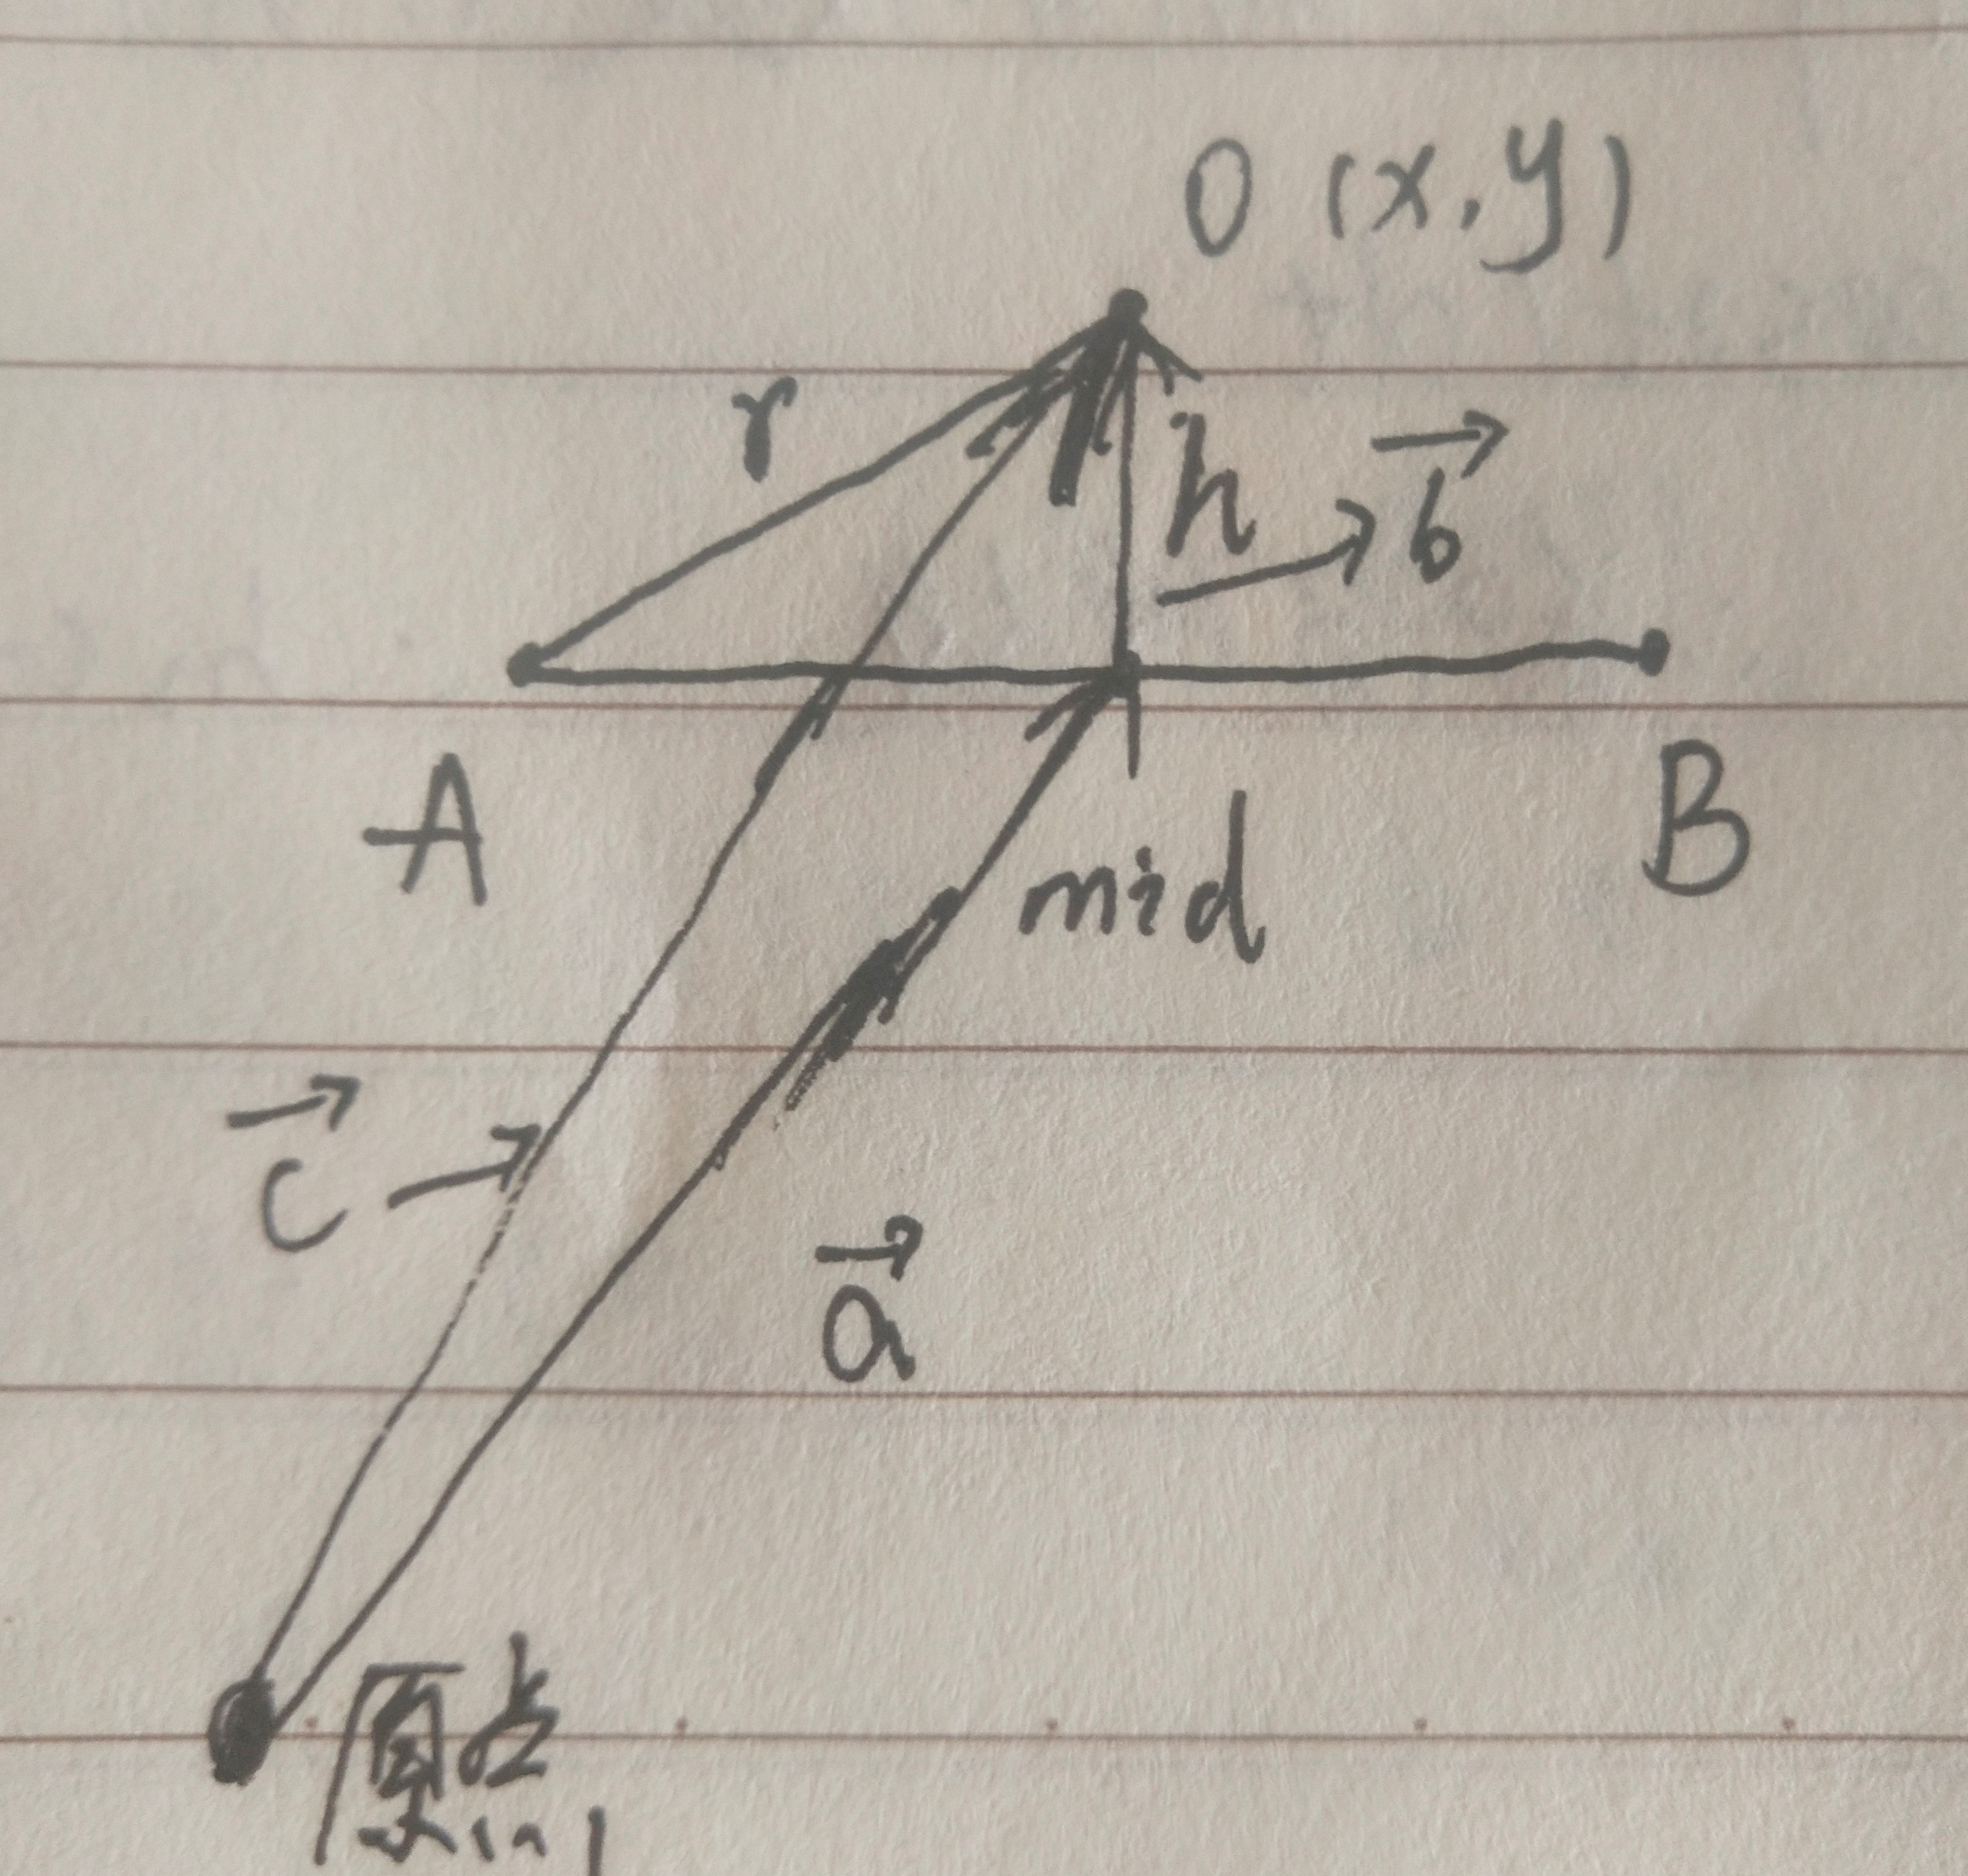 O (x, y)
r
h
b⃗
A
B
mid
c⃗
a⃗
原点